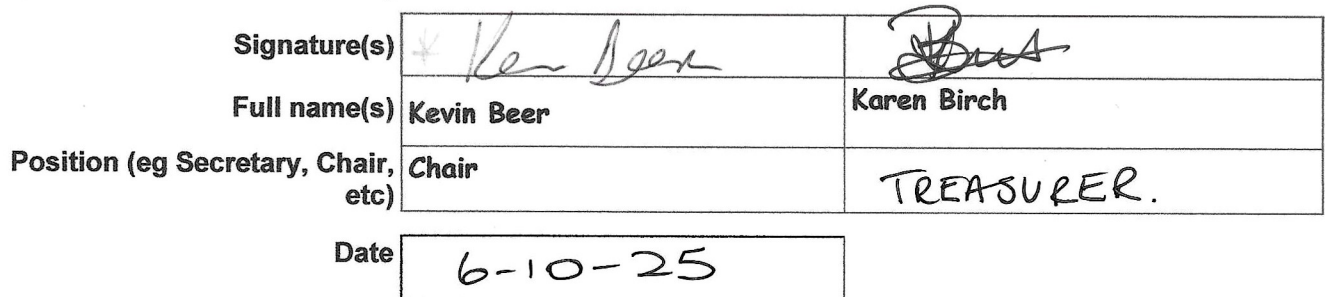 Signature(s) Ken Beer
Full name(s) Kevin Beer Karen Birch
Position (eg Secretary, Chair, Chair TREASURER.
etc)
Date 6-10-25